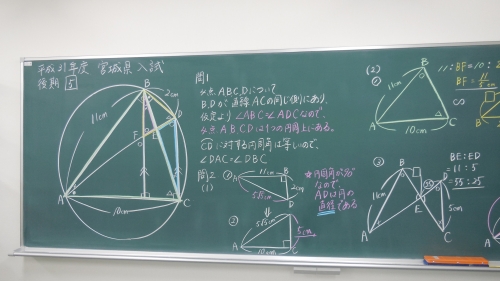 平成31年度 宮城県 入試
後期 5
B
2cm
D
11cm
F
A
C
10cm
問1
4点 A B C D について
B, D が 直線 AC の同じ側にあり、
仮定より ∠ABC = ∠ADC なので、
4点 A B C D は1つの円周上にある。
CD に対する円周角は等しいので、
∠DAC = ∠DBC
問2
(1)
①
11cm
B
A
2cm
5√5cm
D
②
5√5cm
A
10cm
5cm
なので
ADは円の
直径である
(2)
①
B
11cm
A
10cm
C
11 : BF = 10 :
BF = 11/5 cm
∽
B
③
B
D
11cm
E
5cm
A
C
BE : ED
= 11 : 5
= 55 : 25